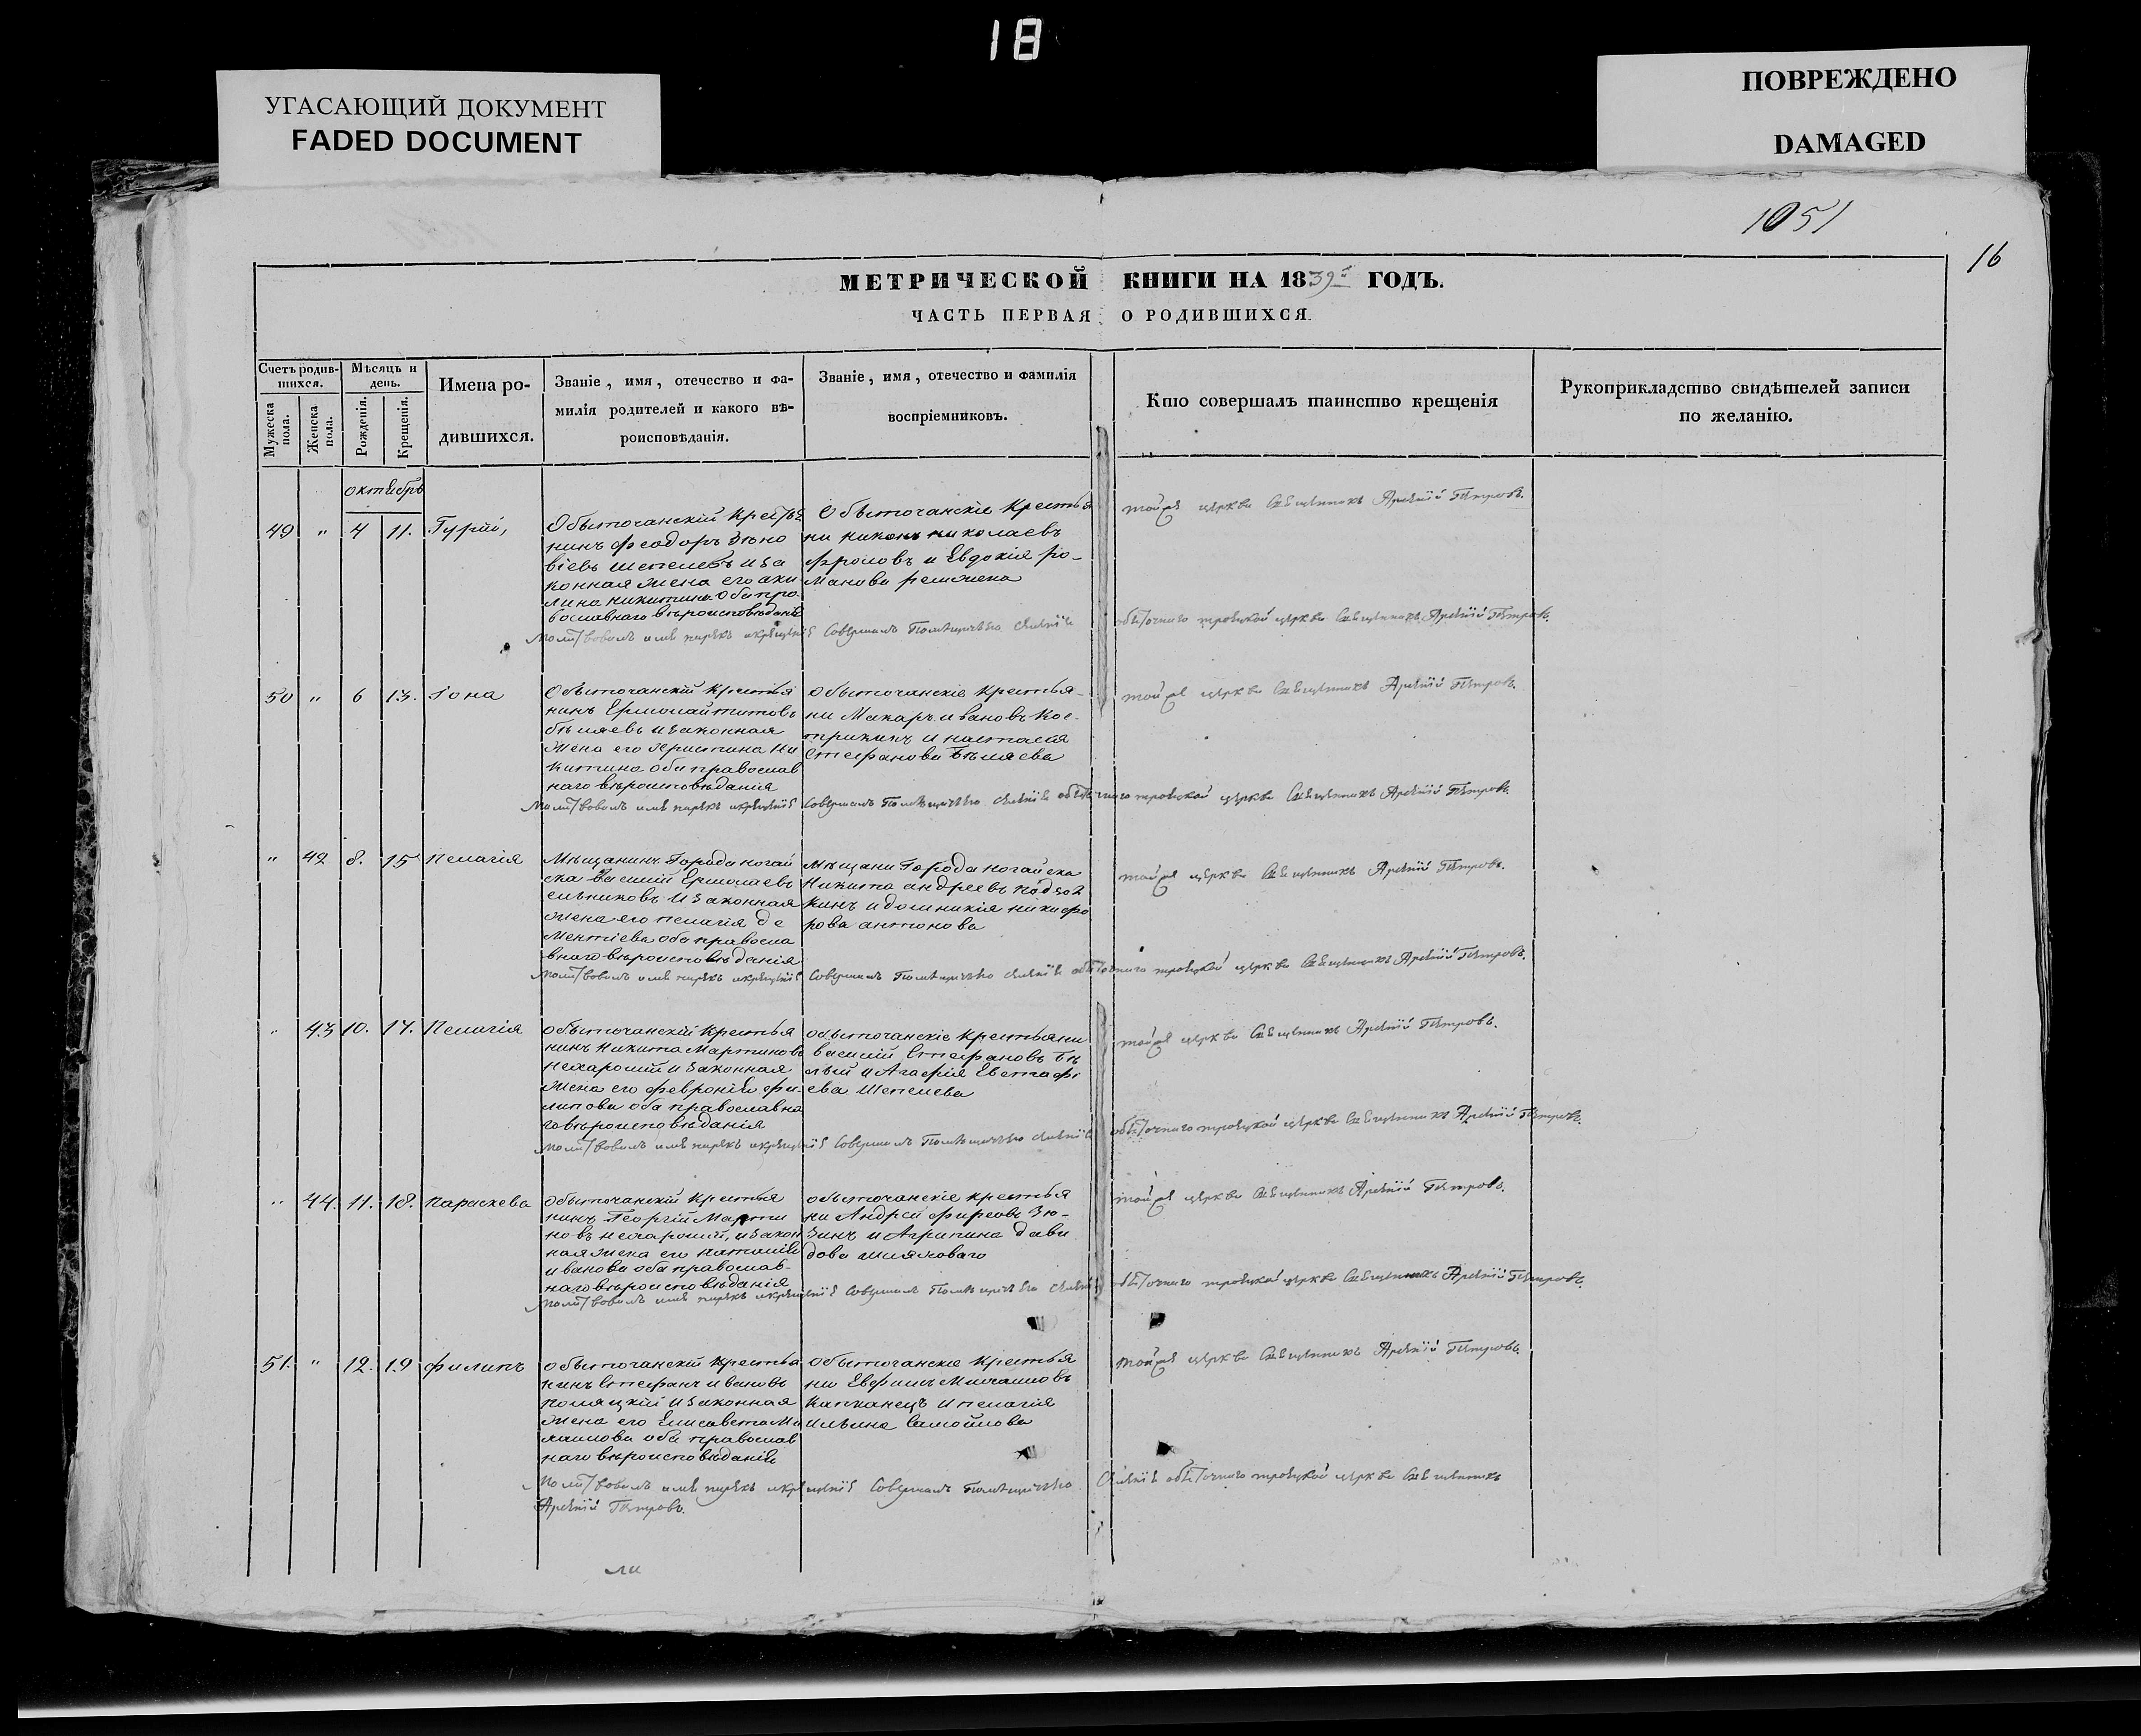 18
УГАСАЮЩИЙ ДОКУМЕНТ
FADED DOCUMENT
ПОВРЕЖДЕНО
DAMAGED
1051
16
МЕТРИЧЕСКОЙ КНИГИ НА 1839й ГОДЪ.
ЧАСТЬ ПЕРВАЯ О РОДИВШИХСЯ.
Счетъ родив-
шихся.
Мужеска пола.
Женска пола.
Мѣсяцъ и
день.
Рожденія.
Крещенія.
Имена ро-
дившихся.
Званіе, имя, отечество и фа-
милія родителей и какого вѣ-
роисповѣданія.
Званіе, имя, отечество и фамилія
воспріемниковъ.
Кто совершалъ таинство крещенія
Рукоприкладство свидѣтелей записи
по желанію.
октябрь
49 " 4 11. Гурій,
Обыточанскій крестья
нинъ Феодоръ Зѣно
віевъ Шепелевъ и за
конная жена его аки
лина никитина оба пра
вославного вѣроисповѣданія
Обыточанскіе крестья
ни никонъ николаевъ
Фроловъ и Евдокія ро-
манова
тойже церкви Священникъ Арсеній Петровъ.
Молитвовалъ имя нарекъ и крещеніе Совершалъ
обыточного троицкой церкви Священникъ Арсеній Петровъ.
50 " 6 13. Іона
Обыточанскій крестья
нинъ Ермолай титовъ
бѣляевъ и законная
жена его христина ни
китина оба православ
наго вѣроисповѣданія
Обыточанскіе крестья-
ни Макаръ ивановъ Кос-
трикинъ и настасія
Стефанова Бѣляева
тойже церкви Священникъ Арсеній Петровъ.
Молитвовалъ имя нарекъ и крещеніе Совершалъ обыточного троицкой церкви Священникъ Арсеній Петровъ.
" 42 8. 15 Пелагія
Мѣщанинъ Города ногай
ска Василій Ермолаевъ
и законная
жена его пелагія де
ментіева оба правосла
вного вѣроисповѣданія
мѣщани Города ногайска
Никита андреевъ
и домникія никифо
рова антонова
тойже церкви Священникъ Арсеній Петровъ.
Молитвовалъ имя нарекъ и крещеніе Совершалъ обыточного троицкой церкви Священникъ Арсеній Петровъ.
" 43 10. 17. Пелагія
обыточанскій крестья
нинъ Никита Мартиновъ
нехарошій и законная
жена его февронія фи-
липова оба православна
говѣроисповѣданія
обыточанскіе крестьяни
василій Стефановъ Бѣ
лый и Агафія Евстафі
ева Шепелева
тойже церкви Священникъ Арсеній Петровъ.
Молитвовалъ имя нарекъ и крещеніе Совершалъ
обыточного троицкой церкви Священникъ Арсеній Петровъ.
" 44. 11. 18. параскева
Обыточанскій крестья
нинъ Георгій Марти
новъ нехарошій, и закон
ная жена его наталія
иванова оба православ-
наго вѣроисповѣданія
обыточанскіе крестья
ни Андрей фирсовъ Зю-
зинъ и Агрипина дави
дова
тойже церкви Священникъ Арсеній Петровъ.
Молитвовалъ имя нарекъ и крещеніе Совершалъ
обыточного троицкой церкви Священникъ Арсеній Петровъ.
51. " 12. 19 филипъ
обыточанскій крестья
нинъ Стефанъ ивановъ
поляцкій и законная
жена его Елисавета Ми
хаилова оба православ
наго вѣроисповѣданія
Обыточанскіе крестья
ни Евфимъ Михаиловъ
Капканецъ и пелагія
ильина Самойлова
тойже церкви Священникъ Арсеній Петровъ.
Молитвовалъ имя нарекъ и крещеніе Совершалъ
обыточного троицкой церкви Священникъ
Арсеній Петровъ.